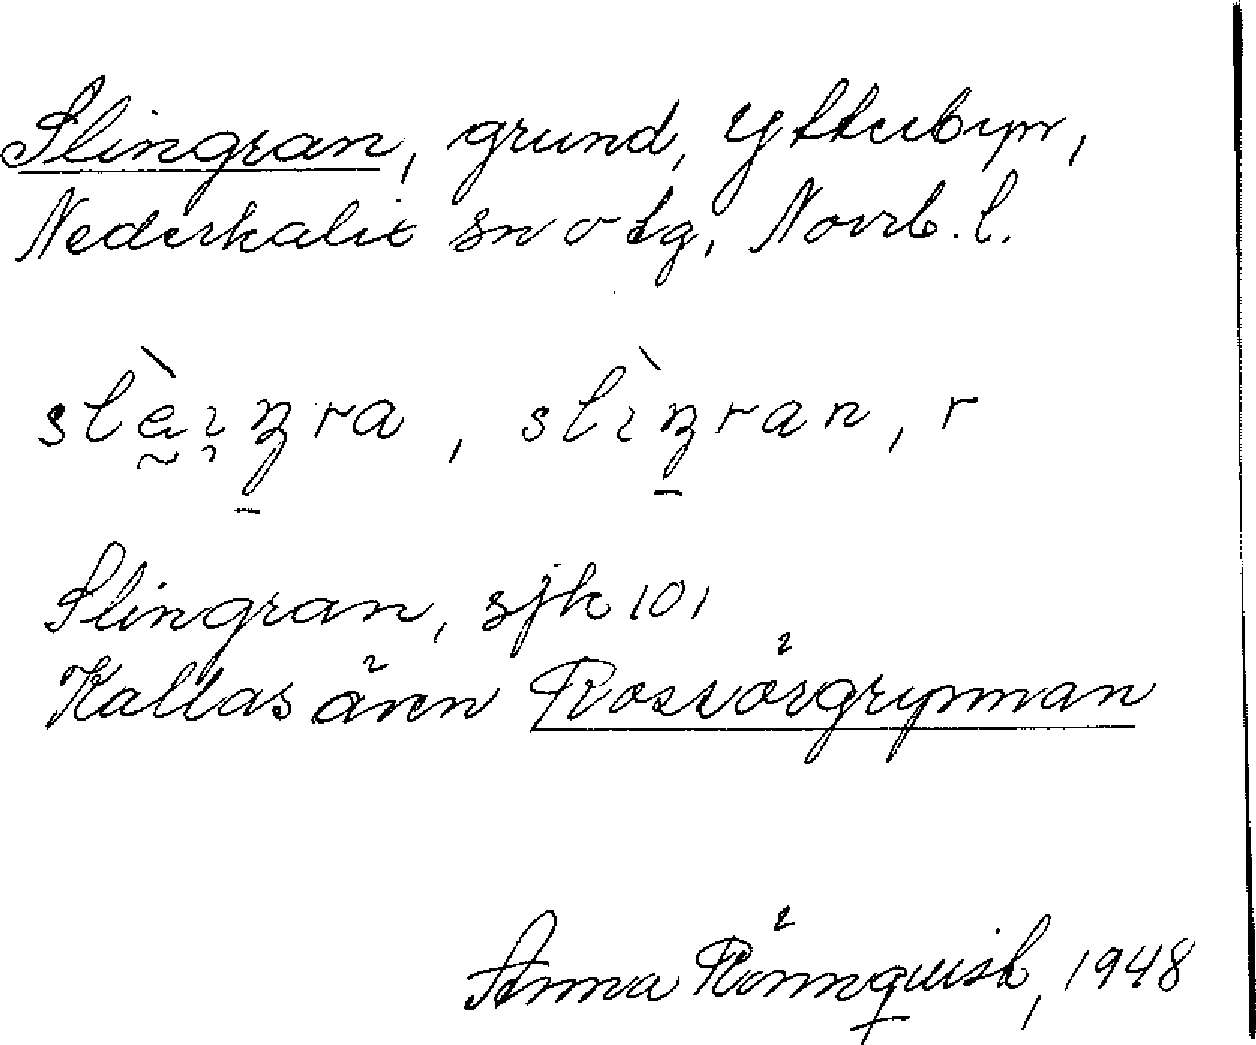 Slingran, grund, Ytterbyn,
Nederkalix sn o tg, Norrb. l.
slèiŋra, slìŋran, r
Slingran, sjk 101
Kallas även Rossörsgrynnan
Anna Rönnquist, 1948